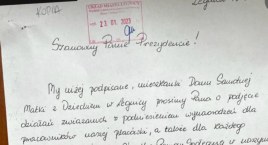 KOPIA
23. 01. 2023
Szanowny Panie Prezydencie!
My niżej podpisane, mieszkanki Domu Samotnej
Matki z Dzieckiem w Legnicy prosimy Pana o podjęcie
działań związanych z podniesieniem wynagrodzeń dla
pracowników naszej placówki, a także dla każdego